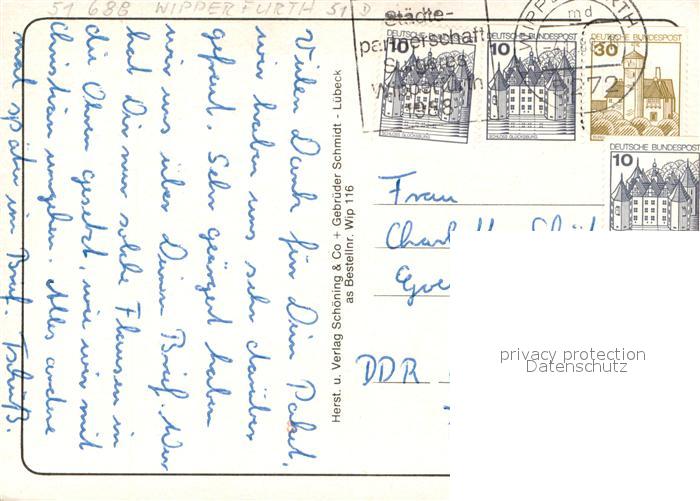 51 688 WIPPERFÜRTH 51 D
Vielen Dank für Dein Paket,
wir haben uns sehr darüber
gefreut. Sehr geärgert haben
wir uns über Deinen Brief. Wer
hat Dir nur solche Flausen in
die Ohren gesetzt, wie wir mit
Christian umgehen. Alles andere
mal später im Brief. Tschüß.
Herst. u. Verlag Schöning & Co + Gebrüder Schmidt - Lübeck
as Bestellnr. Wip 116
Städte-
partnerschaft
Wipperfürth
1988
WIPPERFÜRTH
md
5272
DEUTSCHE BUNDESPOST
10
SCHLOSS GLÜCKSBURG
DEUTSCHE BUNDESPOST
10
SCHLOSS GLÜCKSBURG
30
DEUTSCHE BUNDESPOST
10
Frau
DDR
privacy protection
Datenschutz